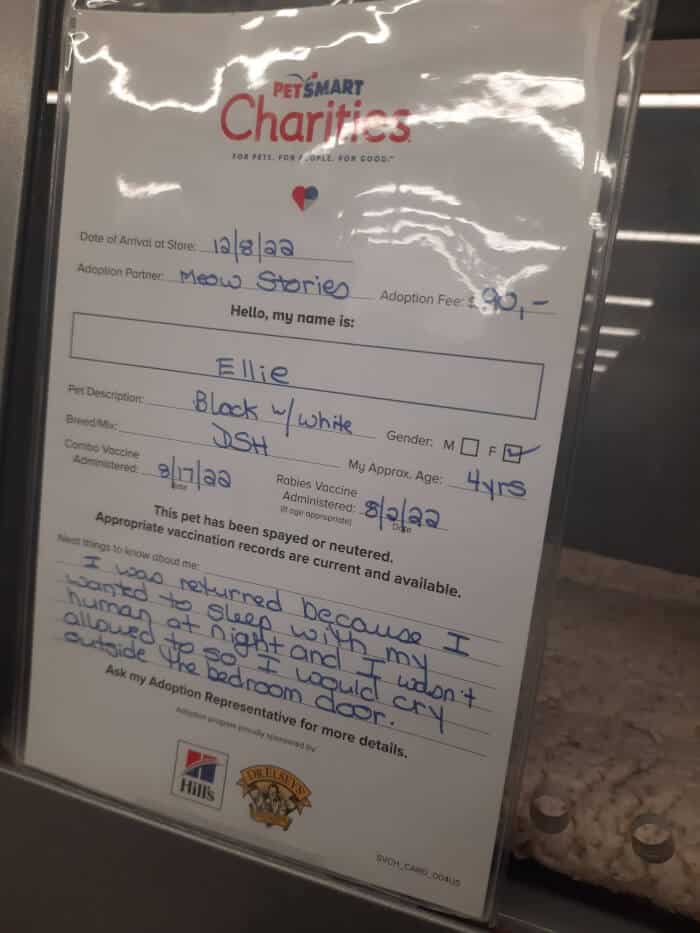 PETSMART
Charities
FOR PETS. FOR PEOPLE. FOR GOOD.™
Date of Arrival at Store: 12/8/22
Adoption Partner: Meow Stories Adoption Fee: $ 90,-
Hello, my name is:
Ellie
Pet Description: Black w/white Gender: M F
Breed/Mix: DSH My Approx. Age: 4yrs
Combo Vaccine
Administered: 8/17/22
Date
Rabies Vaccine
Administered: 8/2/22
(If age appropriate) Date
This pet has been spayed or neutered.
Appropriate vaccination records are current and available.
Neat things to know about me:
I was returned because I
wanted to sleep with my
human at night and I wasn't
allowed to so I would cry
outside the bedroom door.
Ask my Adoption Representative for more details.
Adoption program proudly sponsored by:
Hill's
DR. ELSEY'S
SVCH_CARD_004US